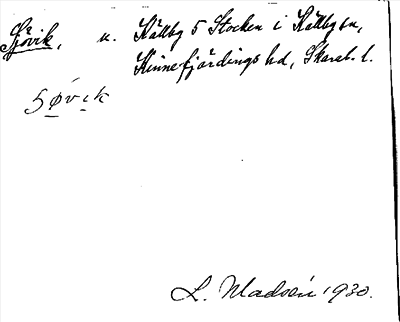 Sjövik, u. Källby 5 Stocken i Källby sn,
Kinnefjördings hd, Skarab. l.
L. Madsén 1930.